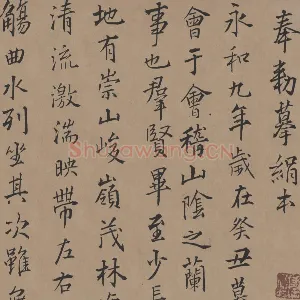 奉勅摹絹本
永和九年歲在癸丑暮
會于會稽山陰之蘭
事也羣賢畢至少長
地有崇山峻嶺茂林
清流激湍映帶左右
觴曲水列坐其次雖無